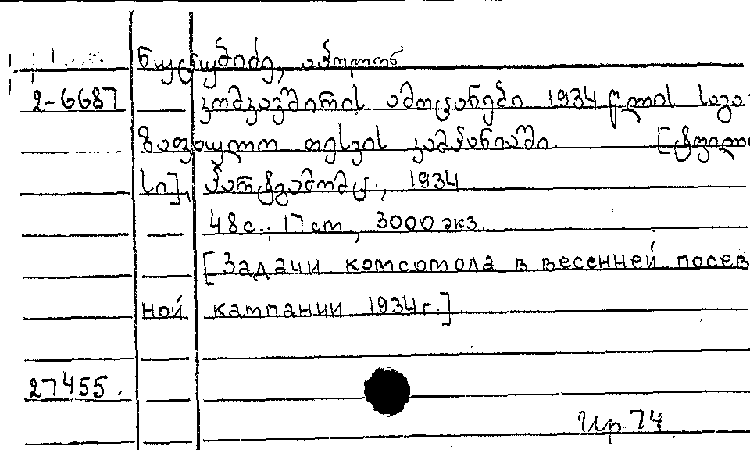 ნუცუბიძე, აპოლონ
2-6687 კომკავშირის ამოცანები 1934 წლის საგა-
ზაფხულო თესვის კამპანიაში. [ტფილი-
სი], პარტგამომც., 1934
48с., 17 cm, 3000 экз.
[Задачи комсомола в весенней посев-
ной кампании 1934г.]
27455.
74